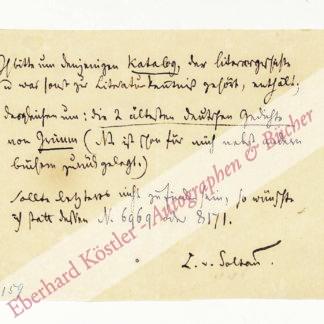 Ich bitte um denjenigen Katalog, der Literargeschichte
u. was sonst zu Literaturkenntniß gehört, enthält;
desgleichen um: die 2 ältesten deutschen Gedichte
von Grimm (NB ist schon für mich nebst andern
büchern zurückgelegt.)
Sollte letzteres nicht zu finden sein, so wünschte
ich statt dessen N. 6969 oder 8171.
L. v. Soltau.
159
Eberhard Köstler - Autographen & Bücher